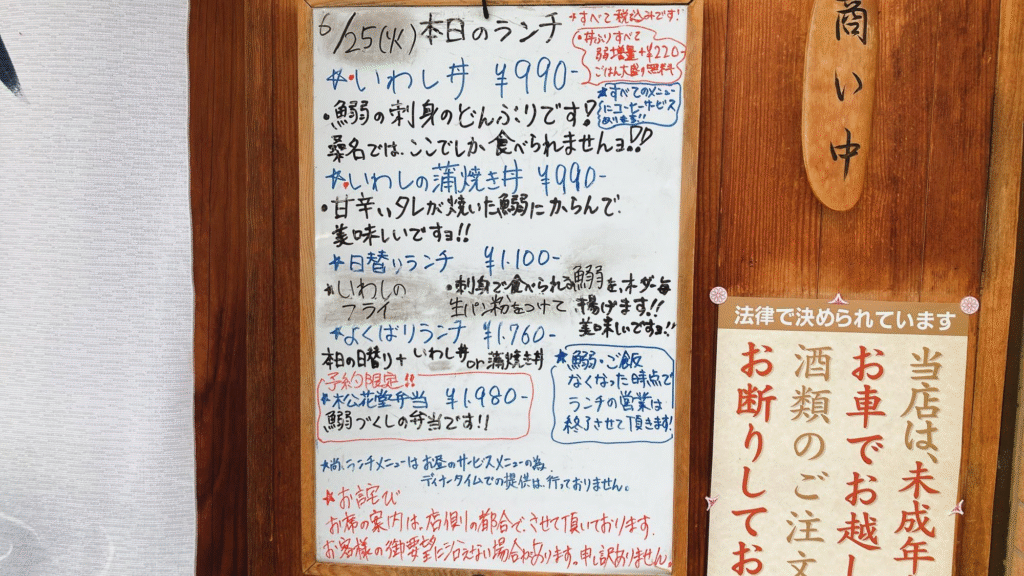 6/25(火)本日のランチ
*すべて税込みです!
・丼ぶりすべて
鰯増量+¥220-
ごはん大盛り無料
★・いわし丼 ¥990-
★すべてのメニュー
にコーヒーサービス
あります!!
・鰯の刺身のどんぶりです!
桑名では、ここでしか食べられませんョ!!
★・いわしの蒲焼き丼 ¥990-
・甘辛いタレが焼いた鰯にからんで、
美味しいですョ!!
★日替りランチ ¥1.100-
★いわしの
フライ
・刺身で食べられる鰯を、オーダー毎
生パン粉をつけて、揚げます!!
美味しいですョ!!
★よくばりランチ ¥1.760-
本日の日替り+いわし丼or蒲焼き丼
予約限定!!
★松花堂弁当 ¥1.980-
鰯づくしの弁当です!!
★鰯・ご飯
なくなった時点で
ランチの営業は
終了させて頂きます!
★尚、ランチメニューはお昼のサービスメニューの為、
ディナータイムでの提供は、行っておりません。
★お詫び
お席の案内は、店側の都合で、させて頂いております。
お客様の御要望に沿えない場合があります。申し訳ありません。
商い中
法律で決められています
当店は、未成年
お車でお越し
酒類のご注文
お断りしてお